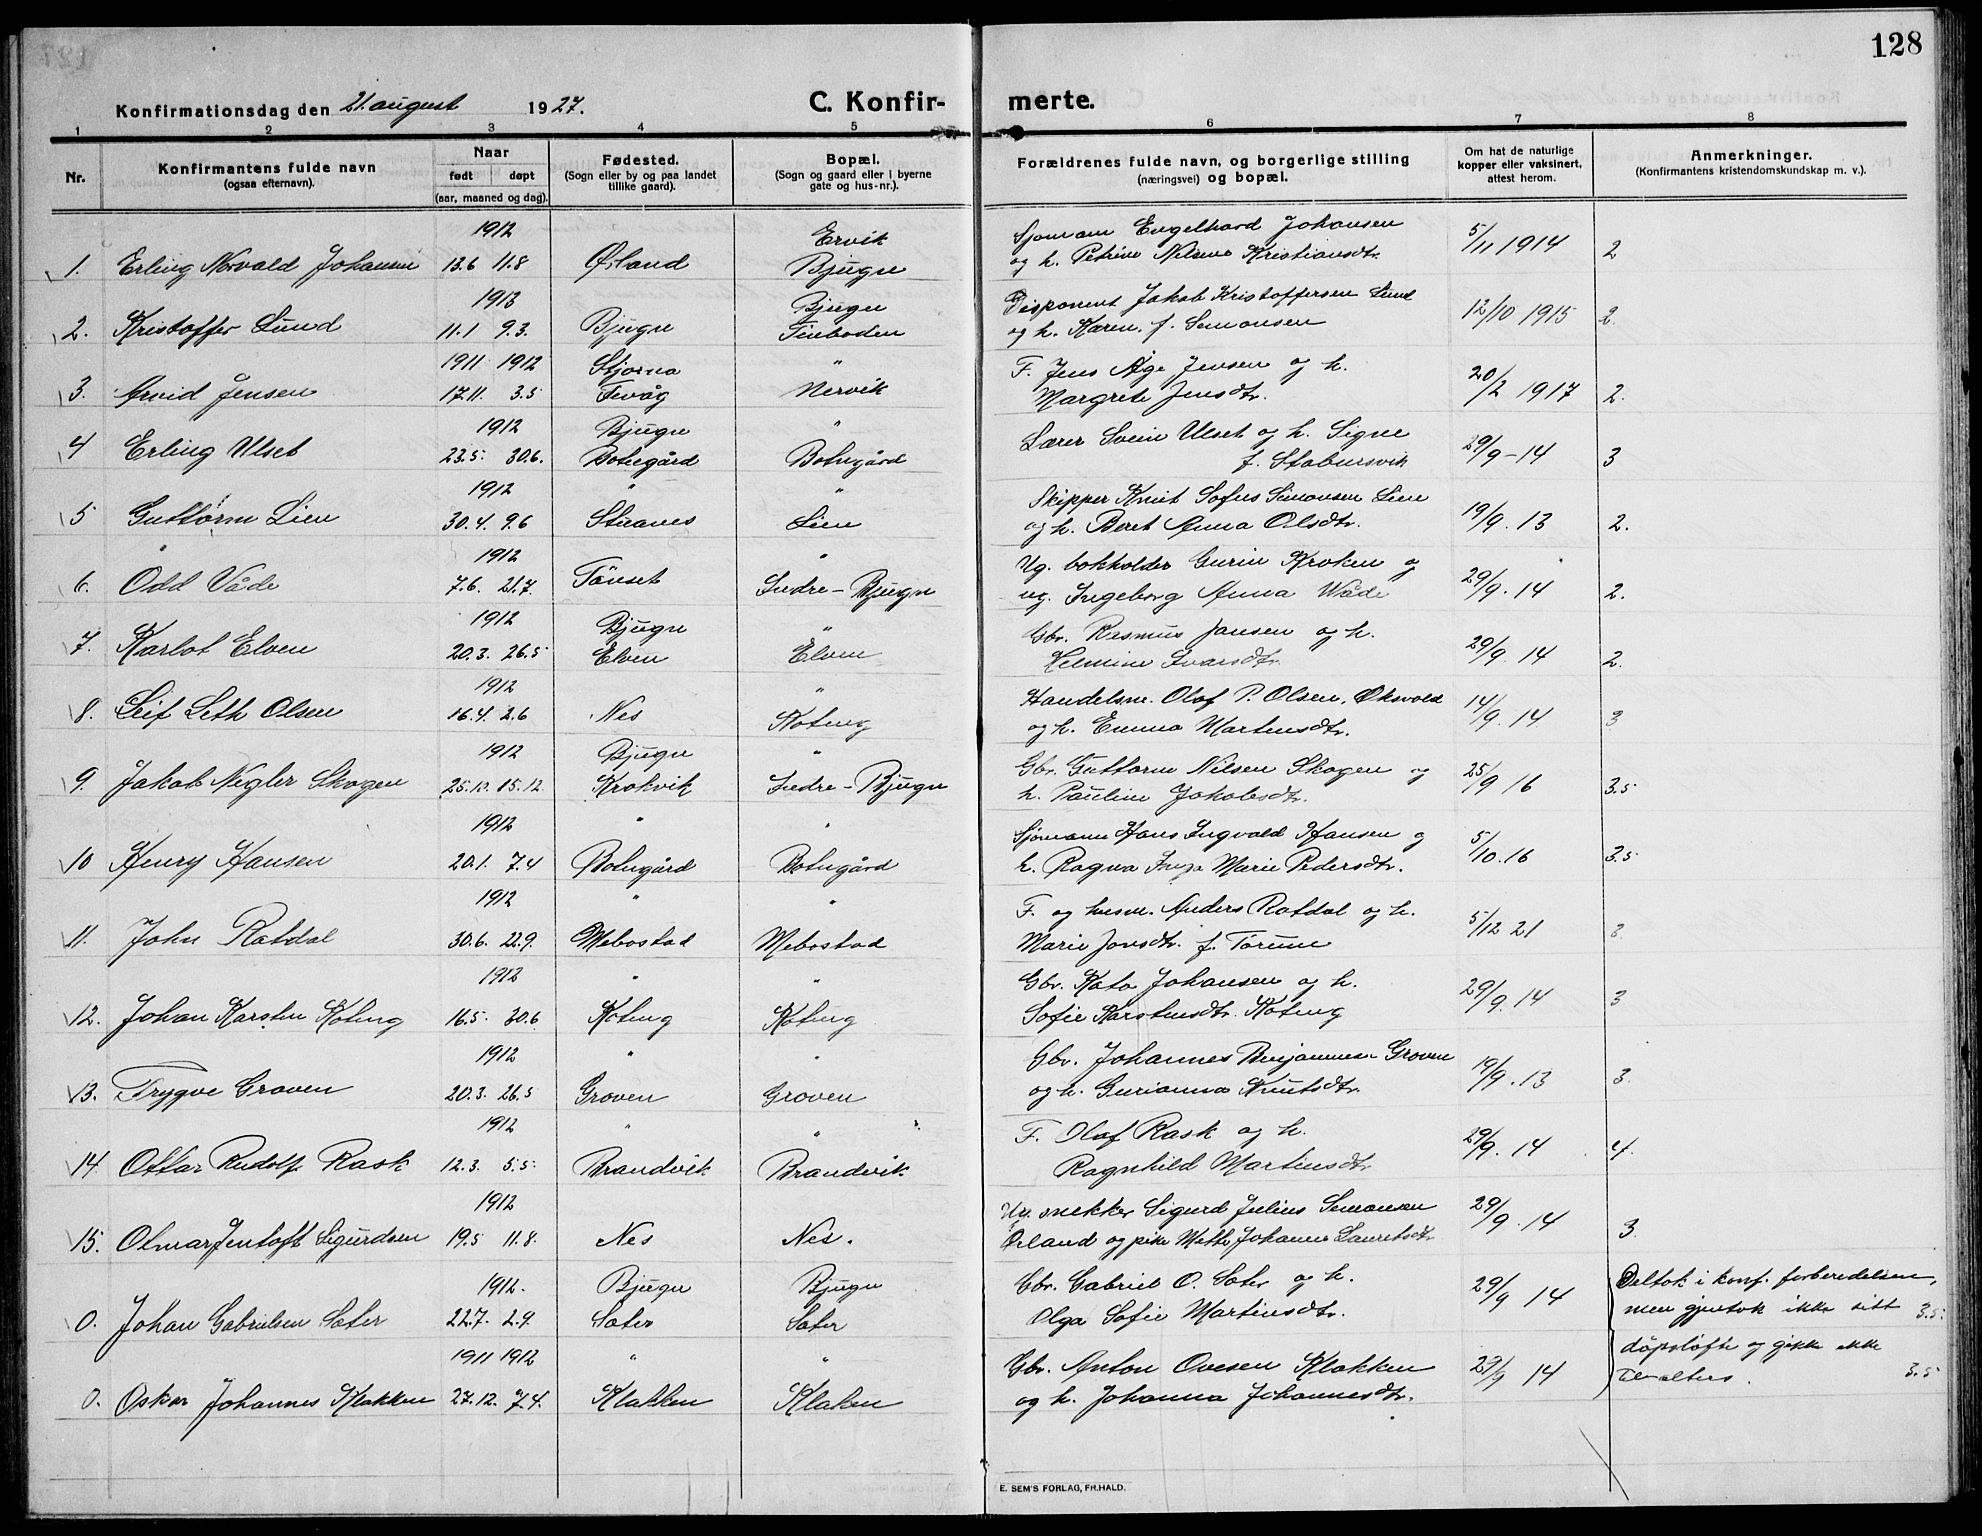 128
Konfirmationsdag den 21. august 1927. C. Konfirmerte.
1 2 3 4 5 6 7 8
Nr. Konfirmantens fulde navn (ogsaa efternavn). Naar født døpt (aar, maaned og dag). Fødested. (Sogn eller by og paa landet tillike gaard). Bopæl. (Sogn og gaard eller i byerne gate og hus-nr.). Forældrenes fulde navn, og borgerlige stilling (næringsvei) og bopæl. Om hat de naturlige kopper eller vaksinert, attest herom. Anmerkninger. (Konfirmantens kristendomskundskap m. v.).
1912 Ervik Sjømann Engelhard Johansen
1. Erling Norvald Johansen 13.6 11.8 Ørland Bjugn og h. Petrine Nilsine Kristiansdtr. 5/11 1914 2
1913 Bjugn Disponent Jakob Kristoffersen Lund
2. Kristoffer Lund 11.1 9.3. Bjugn Tinboden og h. Karen, f. Simonsen 12/10 1915 2.
1911 1912 Stjorna " F. Jens Åge Jensen og h.
3. Arvid Jensen 17.11. 3.5 Fevåg Nervik Margrete Jensdtr. 20/2 1917 2.
1912 Bjugn " Lærer Svein Ulset og h. Signe
4 Erling Ulset 23.5. 30.6. Botngård Botngård f. Stabursvik 29/9-14 3
1912 " " Skipper Knut Sofus Simonsen Lien
5 Guttorm Lien 30.4. 9.6 Lien og h. Beret Anna Olsdtr. 19/9. 13 2.
1912 " Ug. bokholder Gurin Kroken og
6. Odd Våde 7.6. 21.7. Tönset Indre-Bjugn ug. Ingeborg Anna Våde 29/9. 14 2.
1912 Bjugn " Gbr. Rasmus Jansen og h.
7. Karlot Elven 20.3. 26.5 Elven Elven Helmine Ivarsdtr. 29/9. 14 2.
1912 " Handelsm. Olaf P. Olsen, Oksvold
8. Leif Seth Olsen 16.4. 2.6 Nes Koteng og h. Emma Martensdtr. 14/9. 14. 3
1912 Bjugn " Gbr. Guttorm Nilsen Skogen og
9. Jakob Negler Skogen 25.10. 15.12. Krokvik Indre-Bjugn h. Pauline Jakobsdtr. 25/9 16 3.5
1912 " " Sjømann Hans Ingvald Hansen og
10 Henry Hansen 20.1. 7.4 Botngård Botngård h. Ragna Inga Marie Pedersdtr. 5/10. 16 3.5
1912 " " F. og husm. Anders Rotdal og h.
11. John Rotdal 30.6. 22.9. Mebostad Mebostad Marie Jonsdtr. f. Tørum 5/12 21 3.
1912 " " Gbr. Kato Johansen og h.
12. Johan Karsten Koteng 16.5. 30.6 Koteng Koteng Sofie Karstensdtr. Koteng 29/9. 14 3
1912 " " Gbr. Johannes Benjaminsen Groven
13. Trygve Groven 20.3. 26.5 Groven Groven og h. Gurianna Knutsdtr. 19/9. 13 3.
1912 " " F. Olaf Rask og h.
14. Ottar Rudolf Rask 12.3. 5.5. Brandvik Brandvik Ragnhild Martinsdtr 29/9. 14 4.
1912 Ug. snekker Sigurd Julius Simonsen
15. Olmar Jentoft Sigurdsen 19.5 11.8. Nes Nes. Ørland og pike Mette Johanne Lauritsdtr. 29/9. 14 3.
1912. Bjugn Bjugn Gbr. Gabriel O. Sæter og h. Deltok i konf. forberedelsen,
0. Johan Gabrielsen Sæter 22.7. 2.9. Sæter Sæter Olga Sofie Martinsdtr. 29/9 14 men gjentok ikke sitt 3.5.
1911 1912 " " Gbr. Anton Ovesen Klakken døpsløfte og gikk ikke
0. Oskar Johannes Klakken 27.12. 7.4. Klakken Klaken og h. Johanna Johannesdtr. 29/9 14 til alters. 3.5
E. SEM'S FORLAG, FR.HALD.